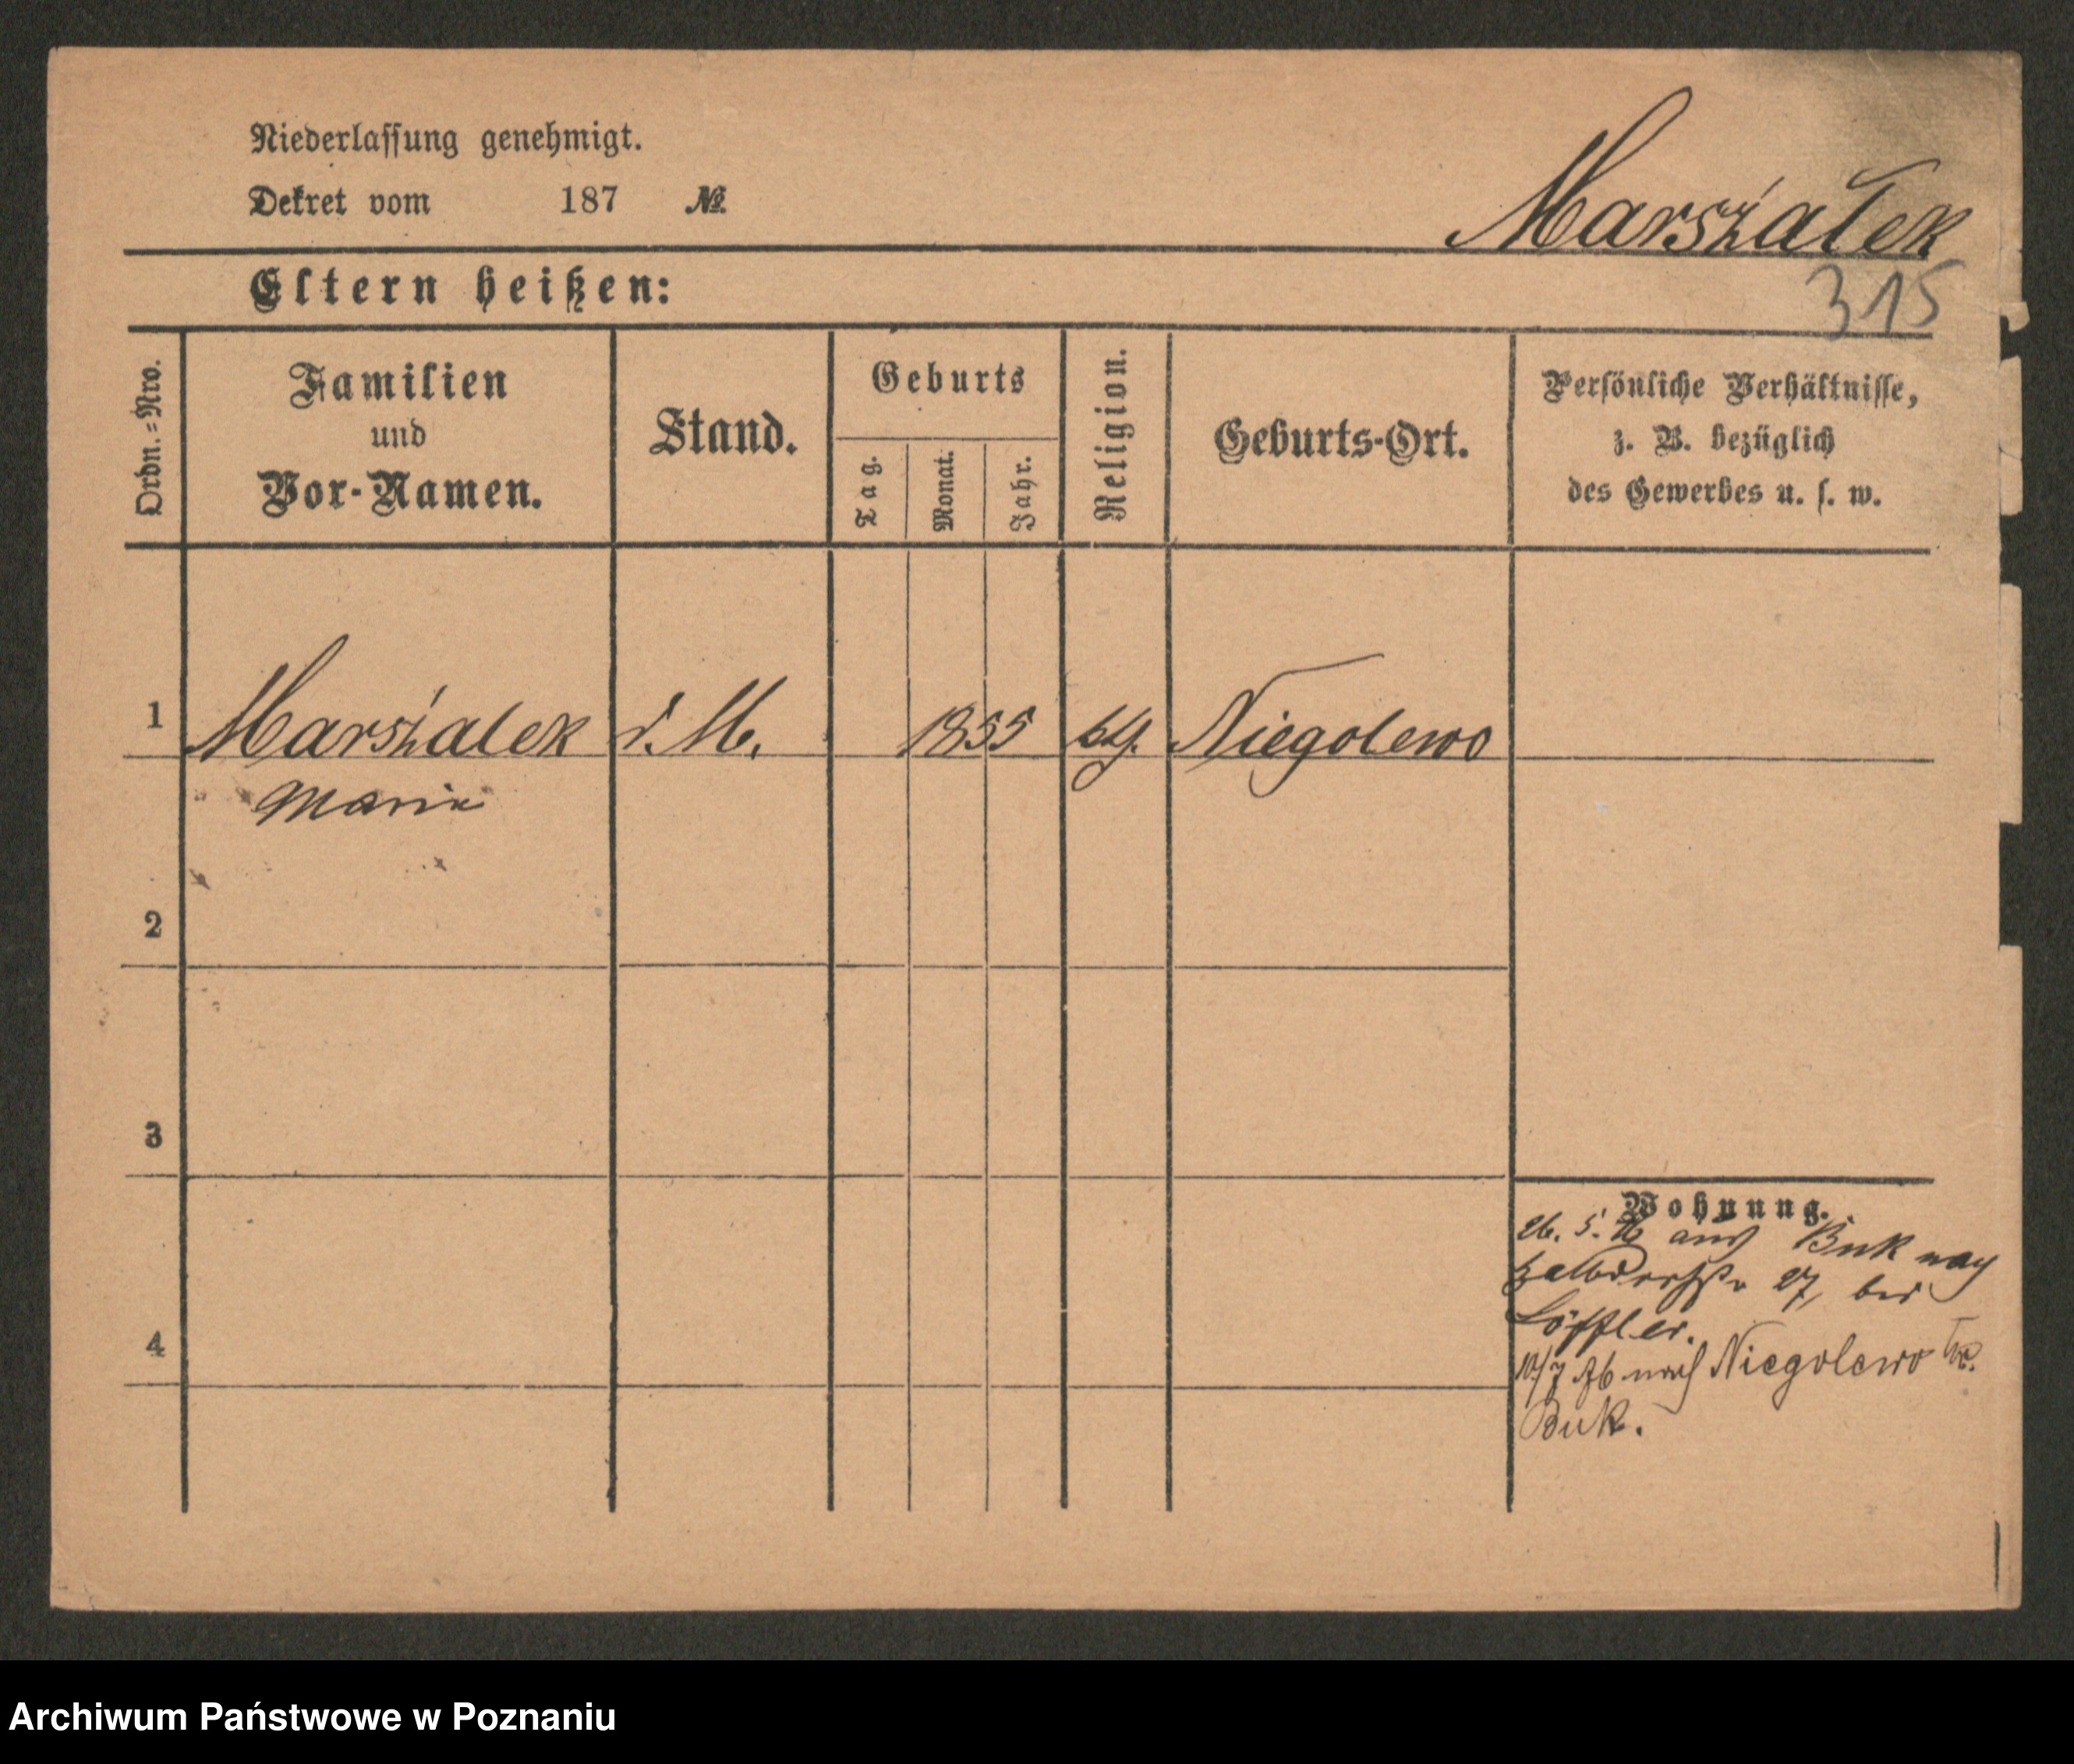 Niederlassung genehmigt.
Dekret vom 187 №
Marszałek
315
Eltern heißen:
Ordn.=Nro.
Familien
und
Vor-Namen.
Stand.
Geburts
Tag.
Monat.
Jahr.
Religion.
Geburts-Ort.
Persönliche Verhältnisse,
z. B. bezüglich
des Gewerbes u. s. w.
1 Marszalek d. M. 1855 kg. Niegolewo
Maria
2
3
4
Wohnung.
26. 5. 76 aus Buk nach
27, bei
Löffler.
10/7 76 nach Niegolewo
Buk.
Archiwum Państwowe w Poznaniu